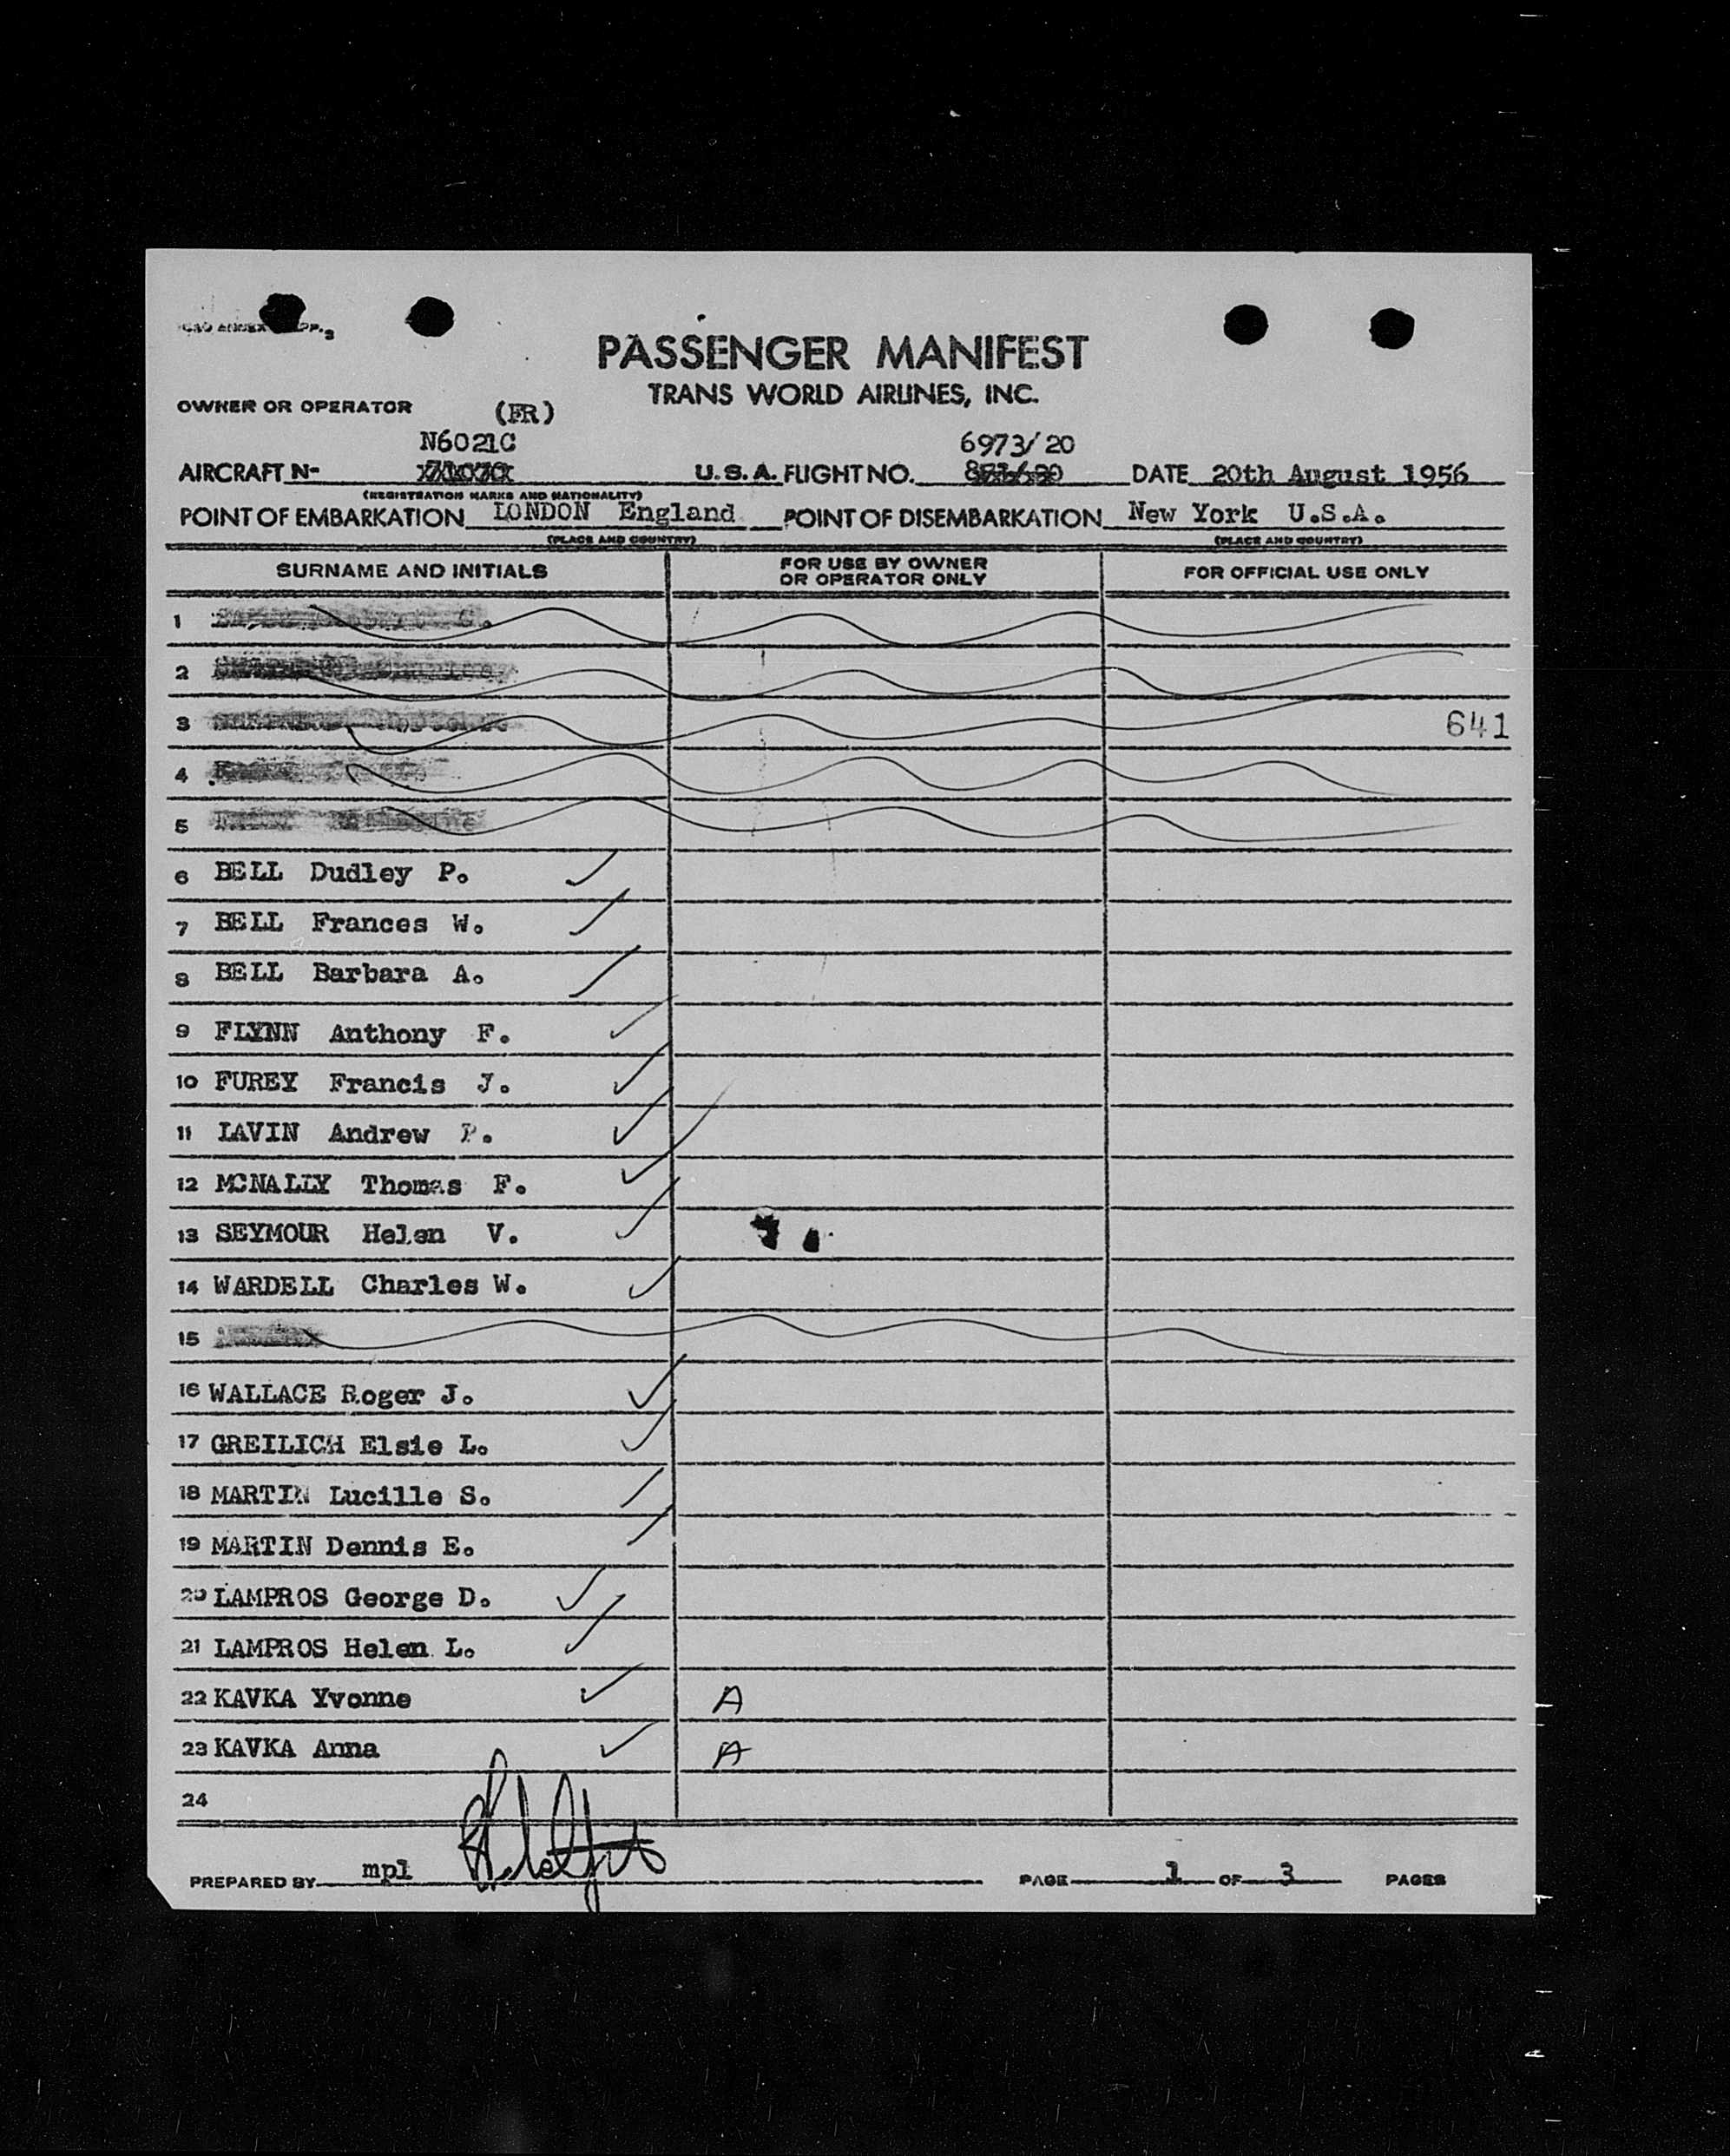 PASSENGER MANIFEST
TRANS WORLD AIRLINES, INC.
OWNER OR OPERATOR (FR)
N6021C 6973/20
AIRCRAFT N- U.S.A. FLIGHT NO. DATE 20th August 1956
(REGISTRATION MARKS AND NATIONALITY)
POINT OF EMBARKATION LONDON England POINT OF DISEMBARKATION New York U.S.A.
(PLACE AND COUNTRY) (PLACE AND COUNTRY)
SURNAME AND INITIALS FOR USE BY OWNER OR OPERATOR ONLY FOR OFFICIAL USE ONLY
1
2
3 641
4
5
6 BELL Dudley P.
7 BELL Frances W.
8 BELL Barbara A.
9 FLYNN Anthony F.
10 FUREY Francis J.
11 LAVIN Andrew P.
12 MCNALLY Thomas F.
13 SEYMOUR Helen V.
14 WARDELL Charles W.
15
16 WALLACE Roger J.
17 GREILICH Elsie L.
18 MARTIN Lucille S.
19 MARTIN Dennis E.
20 LAMPROS George D.
21 LAMPROS Helen L.
22 KAVKA Yvonne A
23 KAVKA Anna A
24
PREPARED BY mpl PAGE 1 OF 3 PAGES